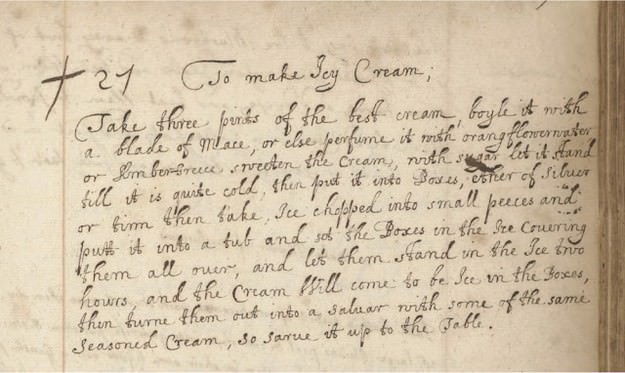 27 To make Icy Cream;
Take three pints of the best cream, boyle it with
a blade of Mace, or else perfume it with orang flower water
or Ambergreece sweeten the Cream, with sugar let it stand
till it is quite cold, then put it into Boxes, ether of Silver
or tinn then take, Ice chopped into small peeces and
putt it into a tub and set the Boxes in the Ice Covering
them all over, and let them stand in the Ice two
hours, and the Cream Will come to be Ice in the Boxes,
then turne them out into a salvar with some of the same
Seasoned Cream, so sarve it up to the Table.